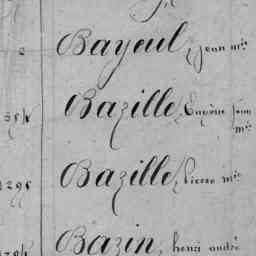 Bayeul, jean m.
Bazille, Eugène jean
m.
1295 Bazille, Pierre m.
Bazin, henri andré